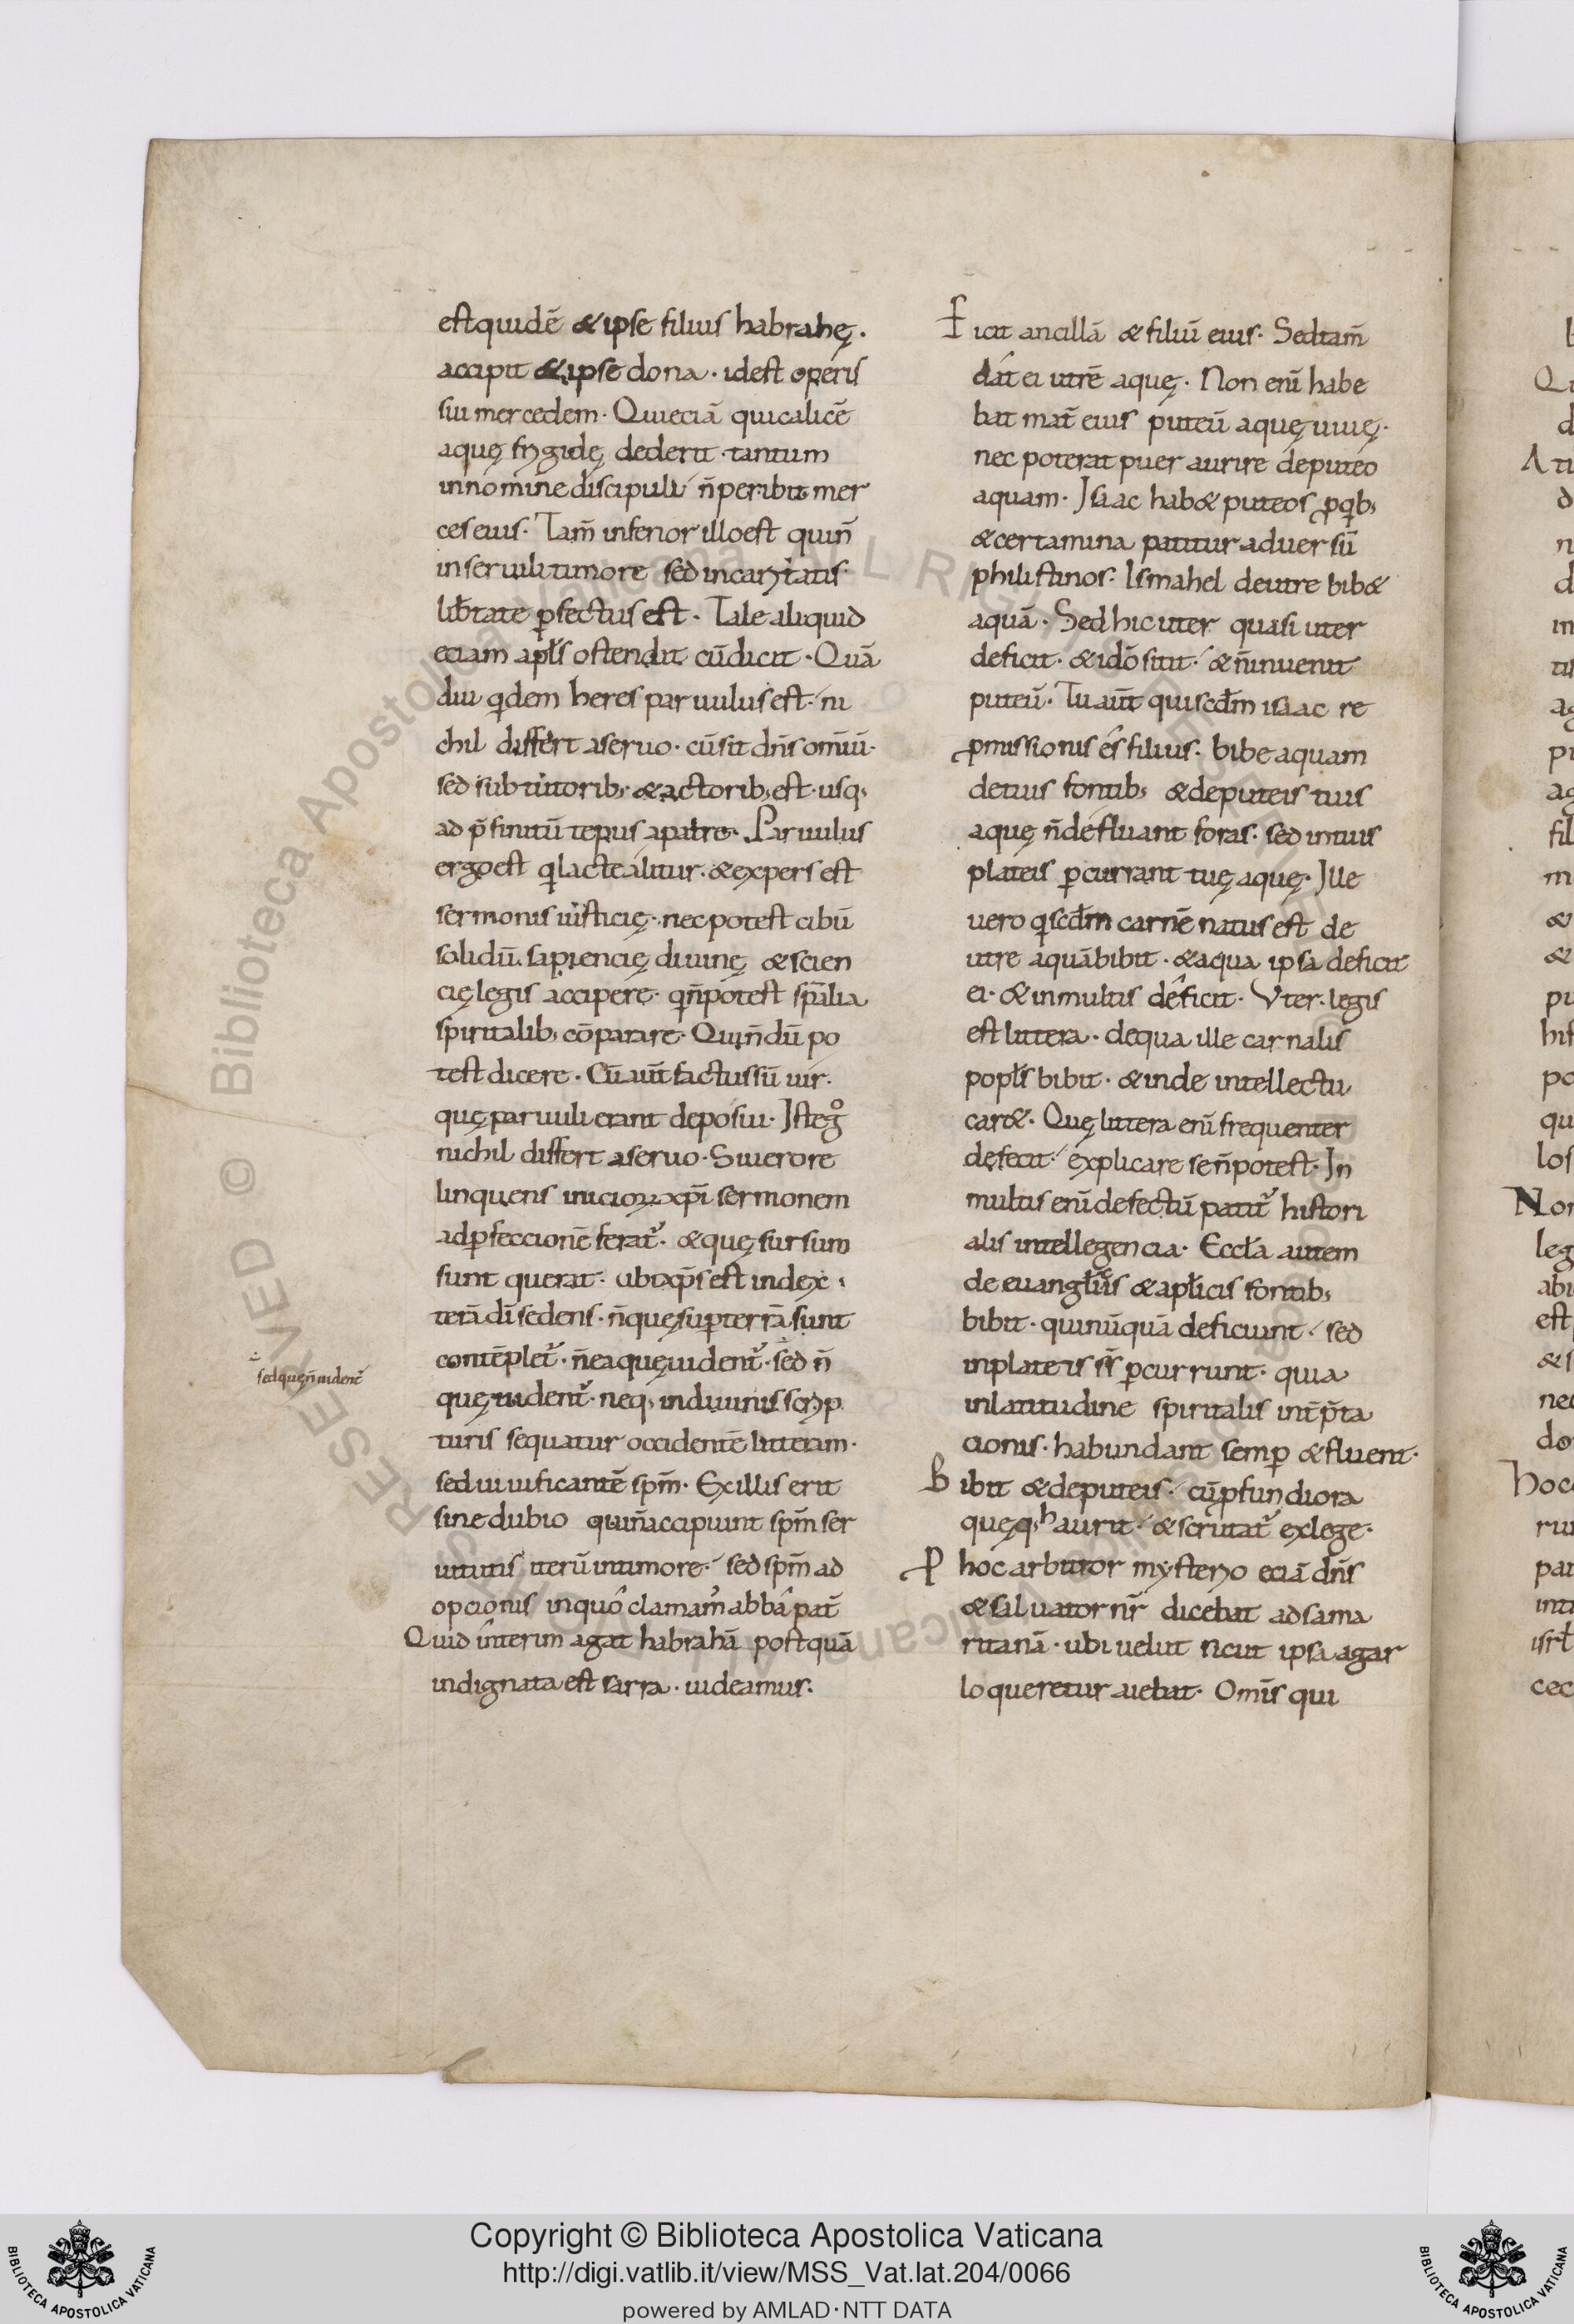 est quidē & ipse filius habrahę.
accipit & ipse dona · id est operis
sui mercedem · Qui eciā qui calicē
aquę frigidę dederit · tantum
in nomine discipuli n̄ peribit mer
ces eius · Tam̄ inferior illo est qui n̄
in seruili timore sed in caritatis
lib̄tate ꝑfectus est · Tale aliquid
eciam apl̄s ostendit cū dicit · Quā
diu qdem heres paruulus est · ni
chil differt a seruo · cū sit dn̄s omniū ·
sed sub tutorib; · & actoribus est · usq;
ad p̄finitū tēpus a patre · Paruulus
ergo est qi lacte alitur · & expers est
sermonis iusticię · nec potest cibū
solidū sapiencię diuinę & scien
cię legis accipere · qi n̄ potest sp̄alia
spiritalib; cōparare · Qui n̄dū po
test dicere · Cū aut̄ factus sū uir ·
quę paruuli erant deposui · Iste gͦ
nichil differt a seruo · Si uero re
linquens inicioꝝ xp̄i sermonem
ad ꝑfeccionē ferat᷑ · & quę sursum
sunt querat · ubi xp̄s est in dex
terā dī sedens · n̄ quę suꝑ terrā sunt
contēplet᷑ · n̄ ea quę uident᷑ · sed n̄
sed quę n̄ uident᷑
quę uident᷑ · neq; in diuinis scrip
turis sequatur occidentē litteram ·
sed uiuificantē sp̄m · Ex illis erit
sine dubio qui n̄ accipiunt sp̄m ser
uitutis iterū in timore · sed sp̄m ad
opcionis in quo clamam᷒ abba pat̄
Quid interim agat habrahā postquā
indignata est sarra · uideamus ·
Eicit ancillā & filiū eius · Sed tam̄
dat ei utrē aquę · Non enī habe
bat mat̄ eius puteū aquę uiuę ·
nec poterat puer aurire de puteo
aquam · Isaac hab& puteos ꝓ qib;
& certamina patitur aduersū
philistinos · Ismahel de utre bib&
aquā · Sed hic uter quasi uter
deficit · & idō sitit · & n̄ inuenit
puteū · Tu aut̄ qui scd̄m isaac re
ꝓmissionis es filius · bibe aquam
de tuis fontib; & de puteis tuis
aquę n̄ defluant foras · sed in tuis
plateis ꝑcurrant tuę aquę · Ille
uero qi scd̄m carnē natus est de
utre aquā bibit · & aqua ipsa deficit
ei · & in multis deficit · Uter · legis
est littera · de qua ille carnalis
popl̄s bibit · & inde intellectu
car& · Quę littera enī frequenter
defecit · explicare se n̄ potest · In
multis enī defectū patit᷑ histori
alis intellegencia · Eccl̄a autem
de euangl̄iis & apl̄icis fontib;
bibit · qui nūquā deficiunt · sed
in plateis suis ꝑcurrunt · quia
in latitudine spiritalis int̄p̄ta
cionis · habundant semꝑ & fluent ·
Bibit & de puteis · cū ꝓfundiora
quęq; haurit · & scrutat᷑ ex lege ·
Ꝑ hoc arbitror mysterio eciā dn̄s
& saluator nr̄ dicebat ad sama
ritanā · ubi uelut si cut ipsa agar
loqueretur aiebat · Omīs qui
Copyright © Biblioteca Apostolica Vaticana
http://digi.vatlib.it/view/MSS_Vat.lat.204/0066
powered by AMLAD·NTT DATA
BIBLIOTECA APOSTOLICA VATICANA
BIBLIOTECA APOSTOLICA VATICANA